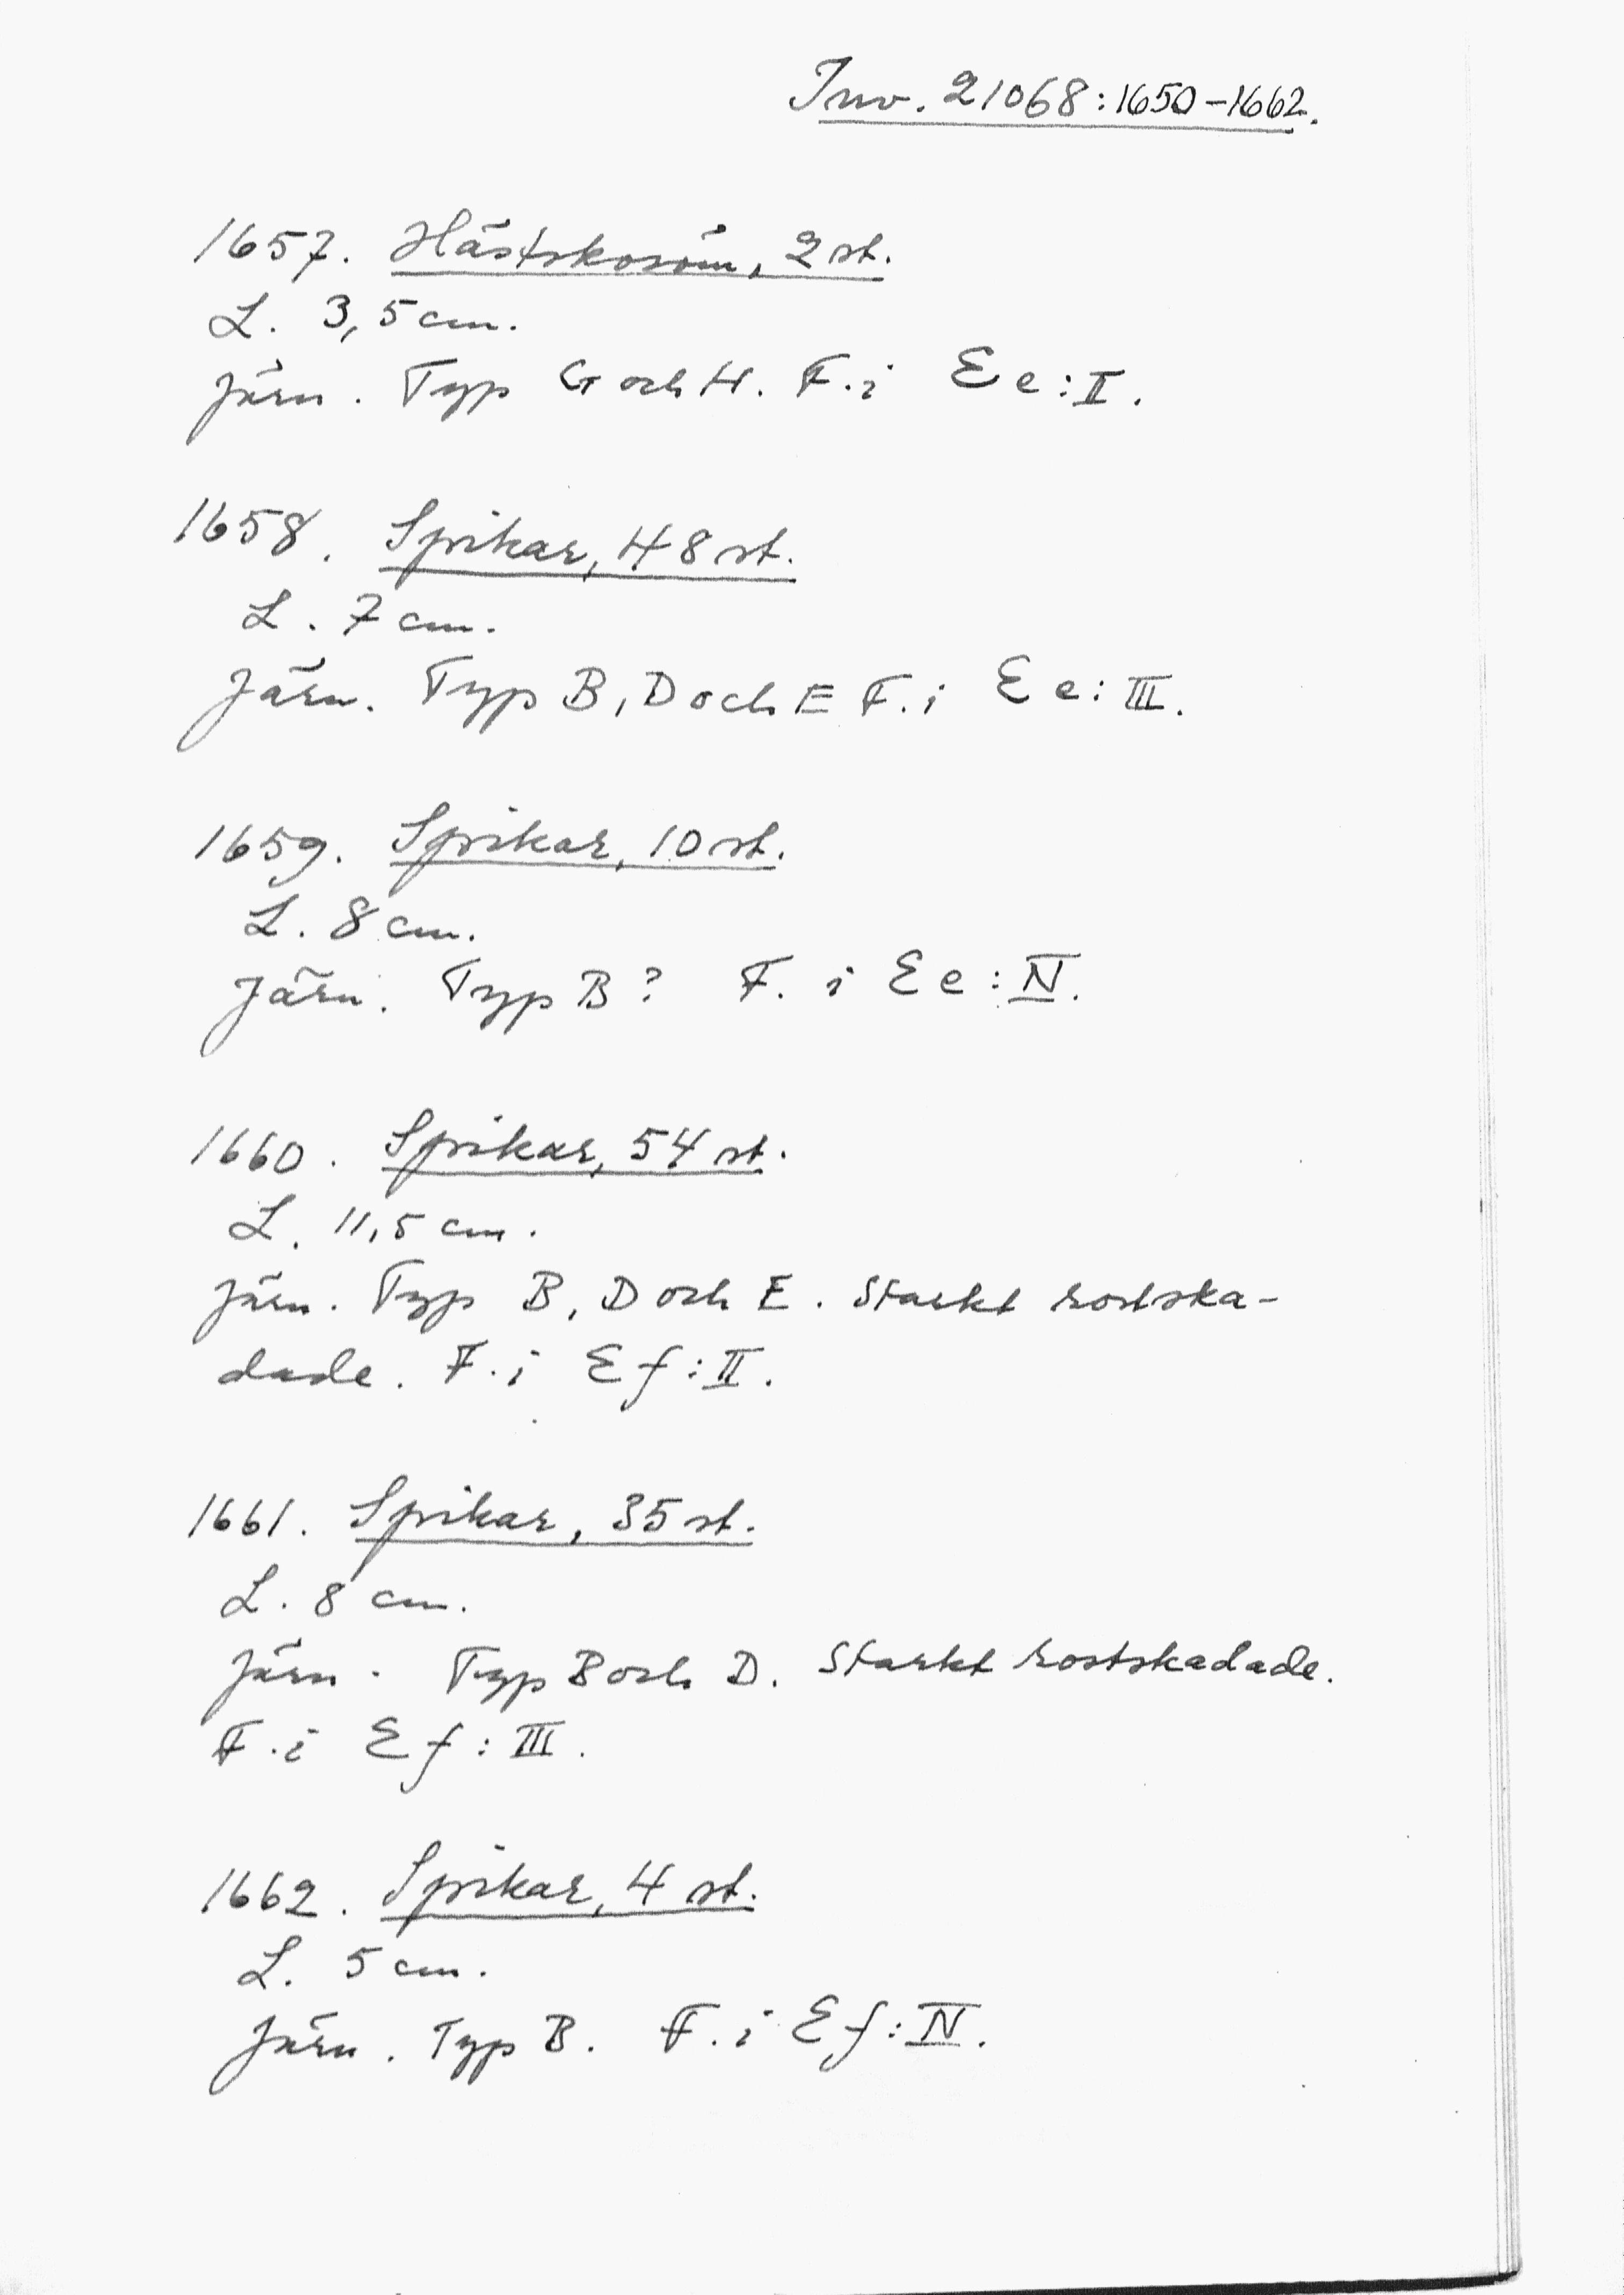 Inv. 21068:1650-1662.
1657. Hästskosöm, 2 st.
L. 3,5 cm.
Järn. Typ G och H. F. i Ee:II.
1658. Spikar, 48 st.
L. 7 cm.
Järn. Typ B, D och E F. i Ee:III.
1659. Spikar, 10 st.
L. 8 cm.
Järn. Typ B? F. i Ee:IV.
1660. Spikar, 54 st.
L. 11,5 cm.
Järn. Typ B, D och E. Starkt rostska-
dade. F. i Ef:II.
1661. Spikar, 35 st.
L. 8 cm.
Järn. Typ B och D. Starkt rostskadade.
F. i Ef:III.
1662. Spikar, 4 st.
L. 5 cm.
Järn. Typ B. F. i Ef:IV.